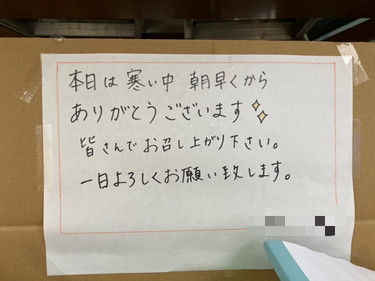 本日は寒い中 朝早くから
ありがとうございます
皆さんでお召し上がり下さい。
一日よろしくお願い致します。